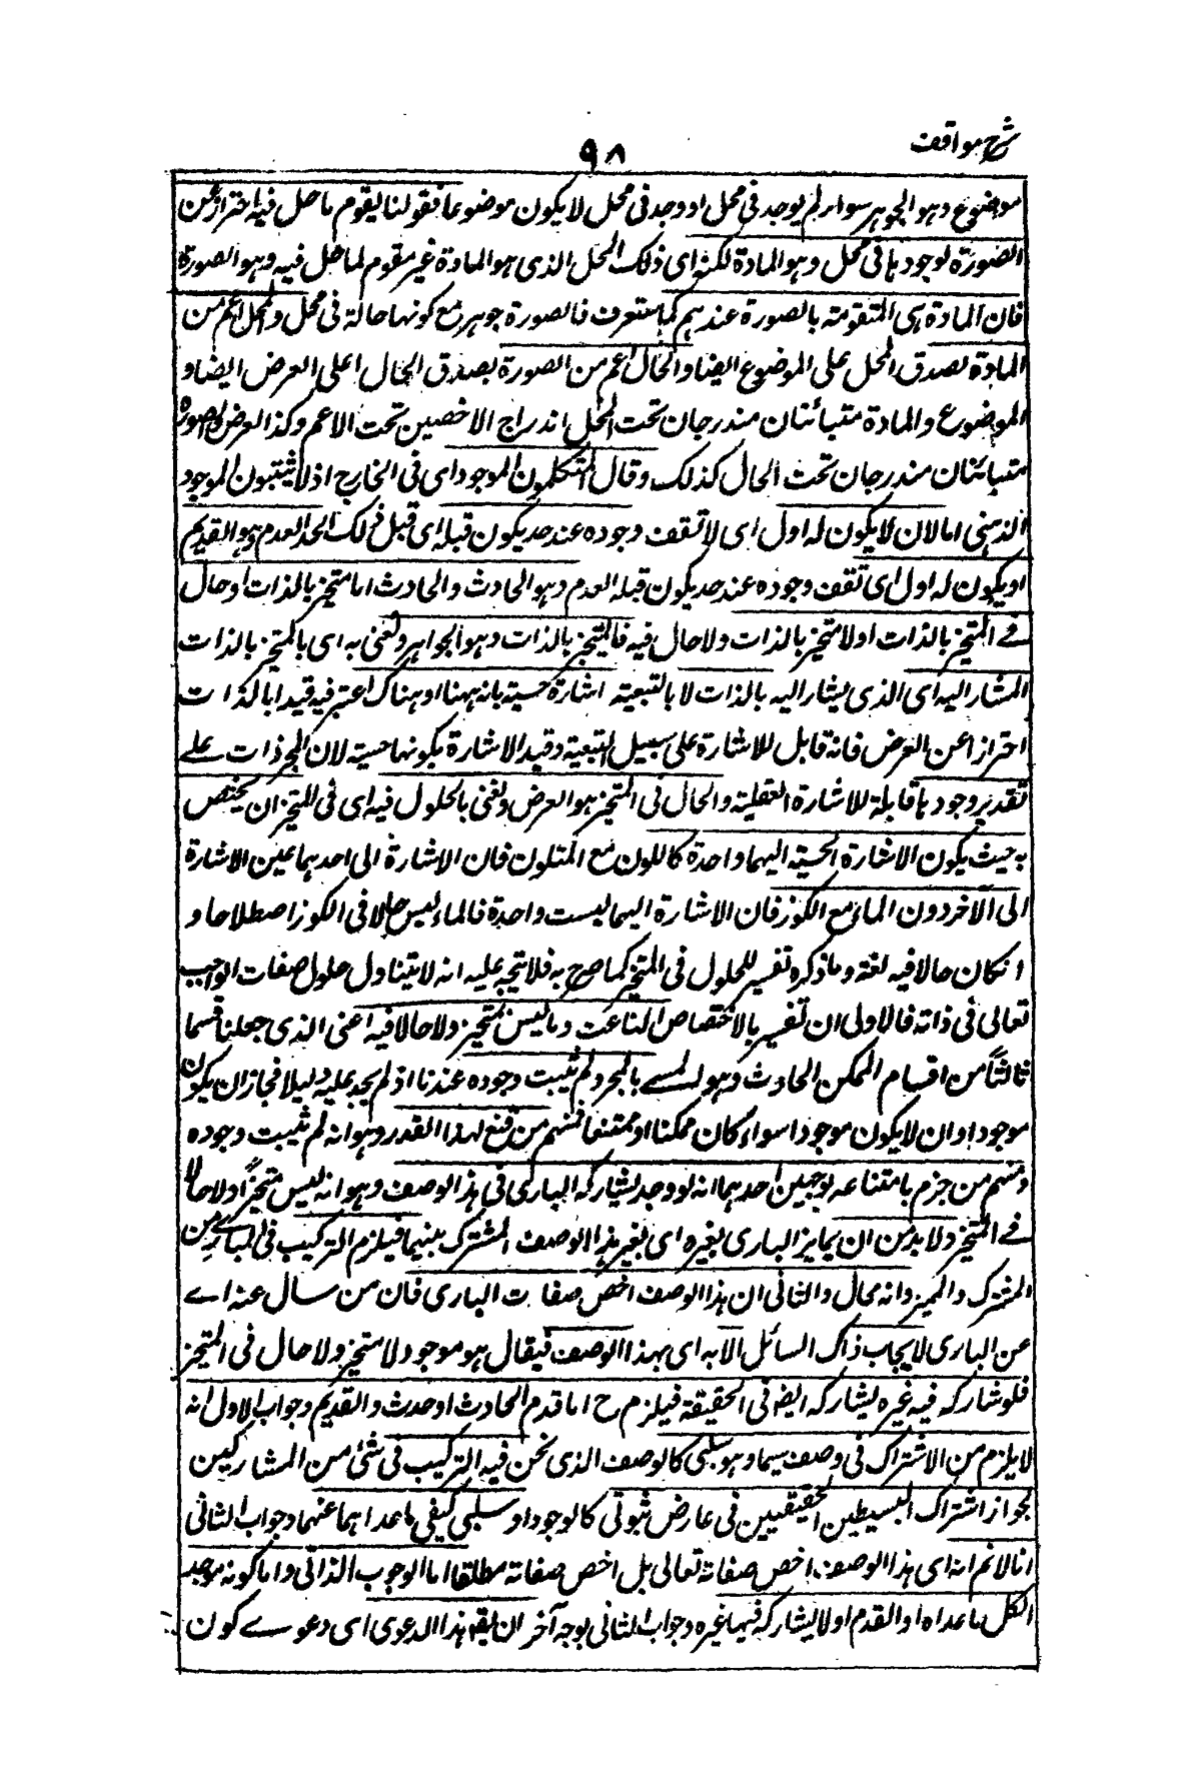 شرح مواقف
٩٨
موضوع وهو الجوهر سواء لم يوجد في محل او وجد في محل لا يكون موضوعا فقولنا يقوم ما حل فيه احتراز عن
الصورة لوجودها في محل وهو المادة لكنه اى ذلك المحل الذى هو المادة غير مقوم لما حل فيه وهو الصورة
فان المادة هى المتقومة بالصورة عندهم كما ستعرف فالصورة جوهر مع كونها حالة في محل والمحل اعم من
المادة لصدق المحل على الموضوع ايضا والحال اعم من الصورة لصدق الحال على العرض ايضا و
الموضوع والمادة متبائنان مندرجان تحت المحل اندراج الاخصين تحت الاعم وكذا العرض والصورة
متبائنان مندرجان تحت الحال كذلك وقال المتكلمون الموجود اى في الخارج اذ لا يثبتون الموجود
الذهنى اما لان لا يكون له اول اى لا تقف وجوده عند حد يكون قبله اى قبل ذلك الحد العدم وهو القديم
او يكون له اول اى تقف وجوده عند حد يكون قبله العدم وهو الحادث والحادث اما متحيز بالذات او حال
فے المتحيز بالذات او لا متحيز بالذات ولا حال فيه فالمتحيز بالذات وهو الجواهر ونعنى به اى بالمتحيز بالذات
المشار اليه اى الذى يشار اليه بالذات لا بالتبعية اشارة حسية بانه ههنا او هناك اعتبر فيه قيد ابالذات
احترازا عن العرض فانه قابل للاشارة على سبيل التبعية وقيد الاشارة بكونها حسية لان المجردات علے
تقدير وجودها قابلة للاشارة العقلية والحال في المتحيز هو العرض ونعنى بالحلول فيه اى في المتحيز ان يختص
به حيث يكون الاشارة الحسية اليهما واحدة كاللون مع المتلون فان الاشارة الى احدهما عين الاشارة
الى الآخر دون الماء مع الكوز فان الاشارة اليهما ليست واحدة فالماء ليس حالا في الكوز اصطلاحا و
انكان حالا فيه لغة وما ذكره تفسير للحلول في المتحيز كما صرح به فلا يتجه عليه انه لا يتناول حلول صفات الواجب
تعالى في ذاته فالاولى ان تفسر بالاختصاص الناعت وما ليس متحيز ولا حالا فيه اعنى الذى جعلنا قسما
ثالثاً من اقسام الممكن الحادث وهو المسمے بالمجرد لم يثبت وجوده عندنا اذ لم يجد عليه دليلا فجاز ان يكون
موجودا وان لا يكون موجودا سواء كان ممكنا او ممتنعا فمنهم من قنع لهذا القدر وهو انه لم يثبت وجوده
ومنهم من جزم بامتناعه بوجهين احدهما انه لو وجد ليشاركه البارى في هذا الوصف وهو انه ليس متحيزاً ولا حالا
فے المتحيز ولا بد من ان يمايز البارى بغيره اى بغير هذا الوصف المشترك بينهما فيلزم التركيب في البارے من
المشترك والمميز وانه محال والثانى ان هذا الوصف اخص صفات البارى فان من سال عنه اے
عن البارى لا يجاب ذاك السائل الا به اى بهذا الوصف فيقال هو موجود لا متحيز ولا حال في المتحيز
فلو شاركه فيه غيره ليشاركه ايضا في الحقيقة فيلزم ح اما قدم الحادث او حدث والقديم وجواب الاول انه
لا يلزم من الاشتراك في وصف سيما وهو سلبى كالوصف الذى نحن فيه التركيب في شئ من المشاركين
لجواز اشتراك البسيطين الحقيقيين في عارض ثبوتى كالوجود او سلبى كنفى ما عداهما عنهما وجواب الثانى
انا لا نم انه اى هذا الوصف اخص صفاته تعالى بل اخص صفاته مطلقا اما الوجوب الذاتى واما كونه موجد
الكل ما عداه او القدم او لا ليشاركه فيهما غيره وجواب الثانى بوجه آخر ان يق هذا الدعوى اى دعوے كون